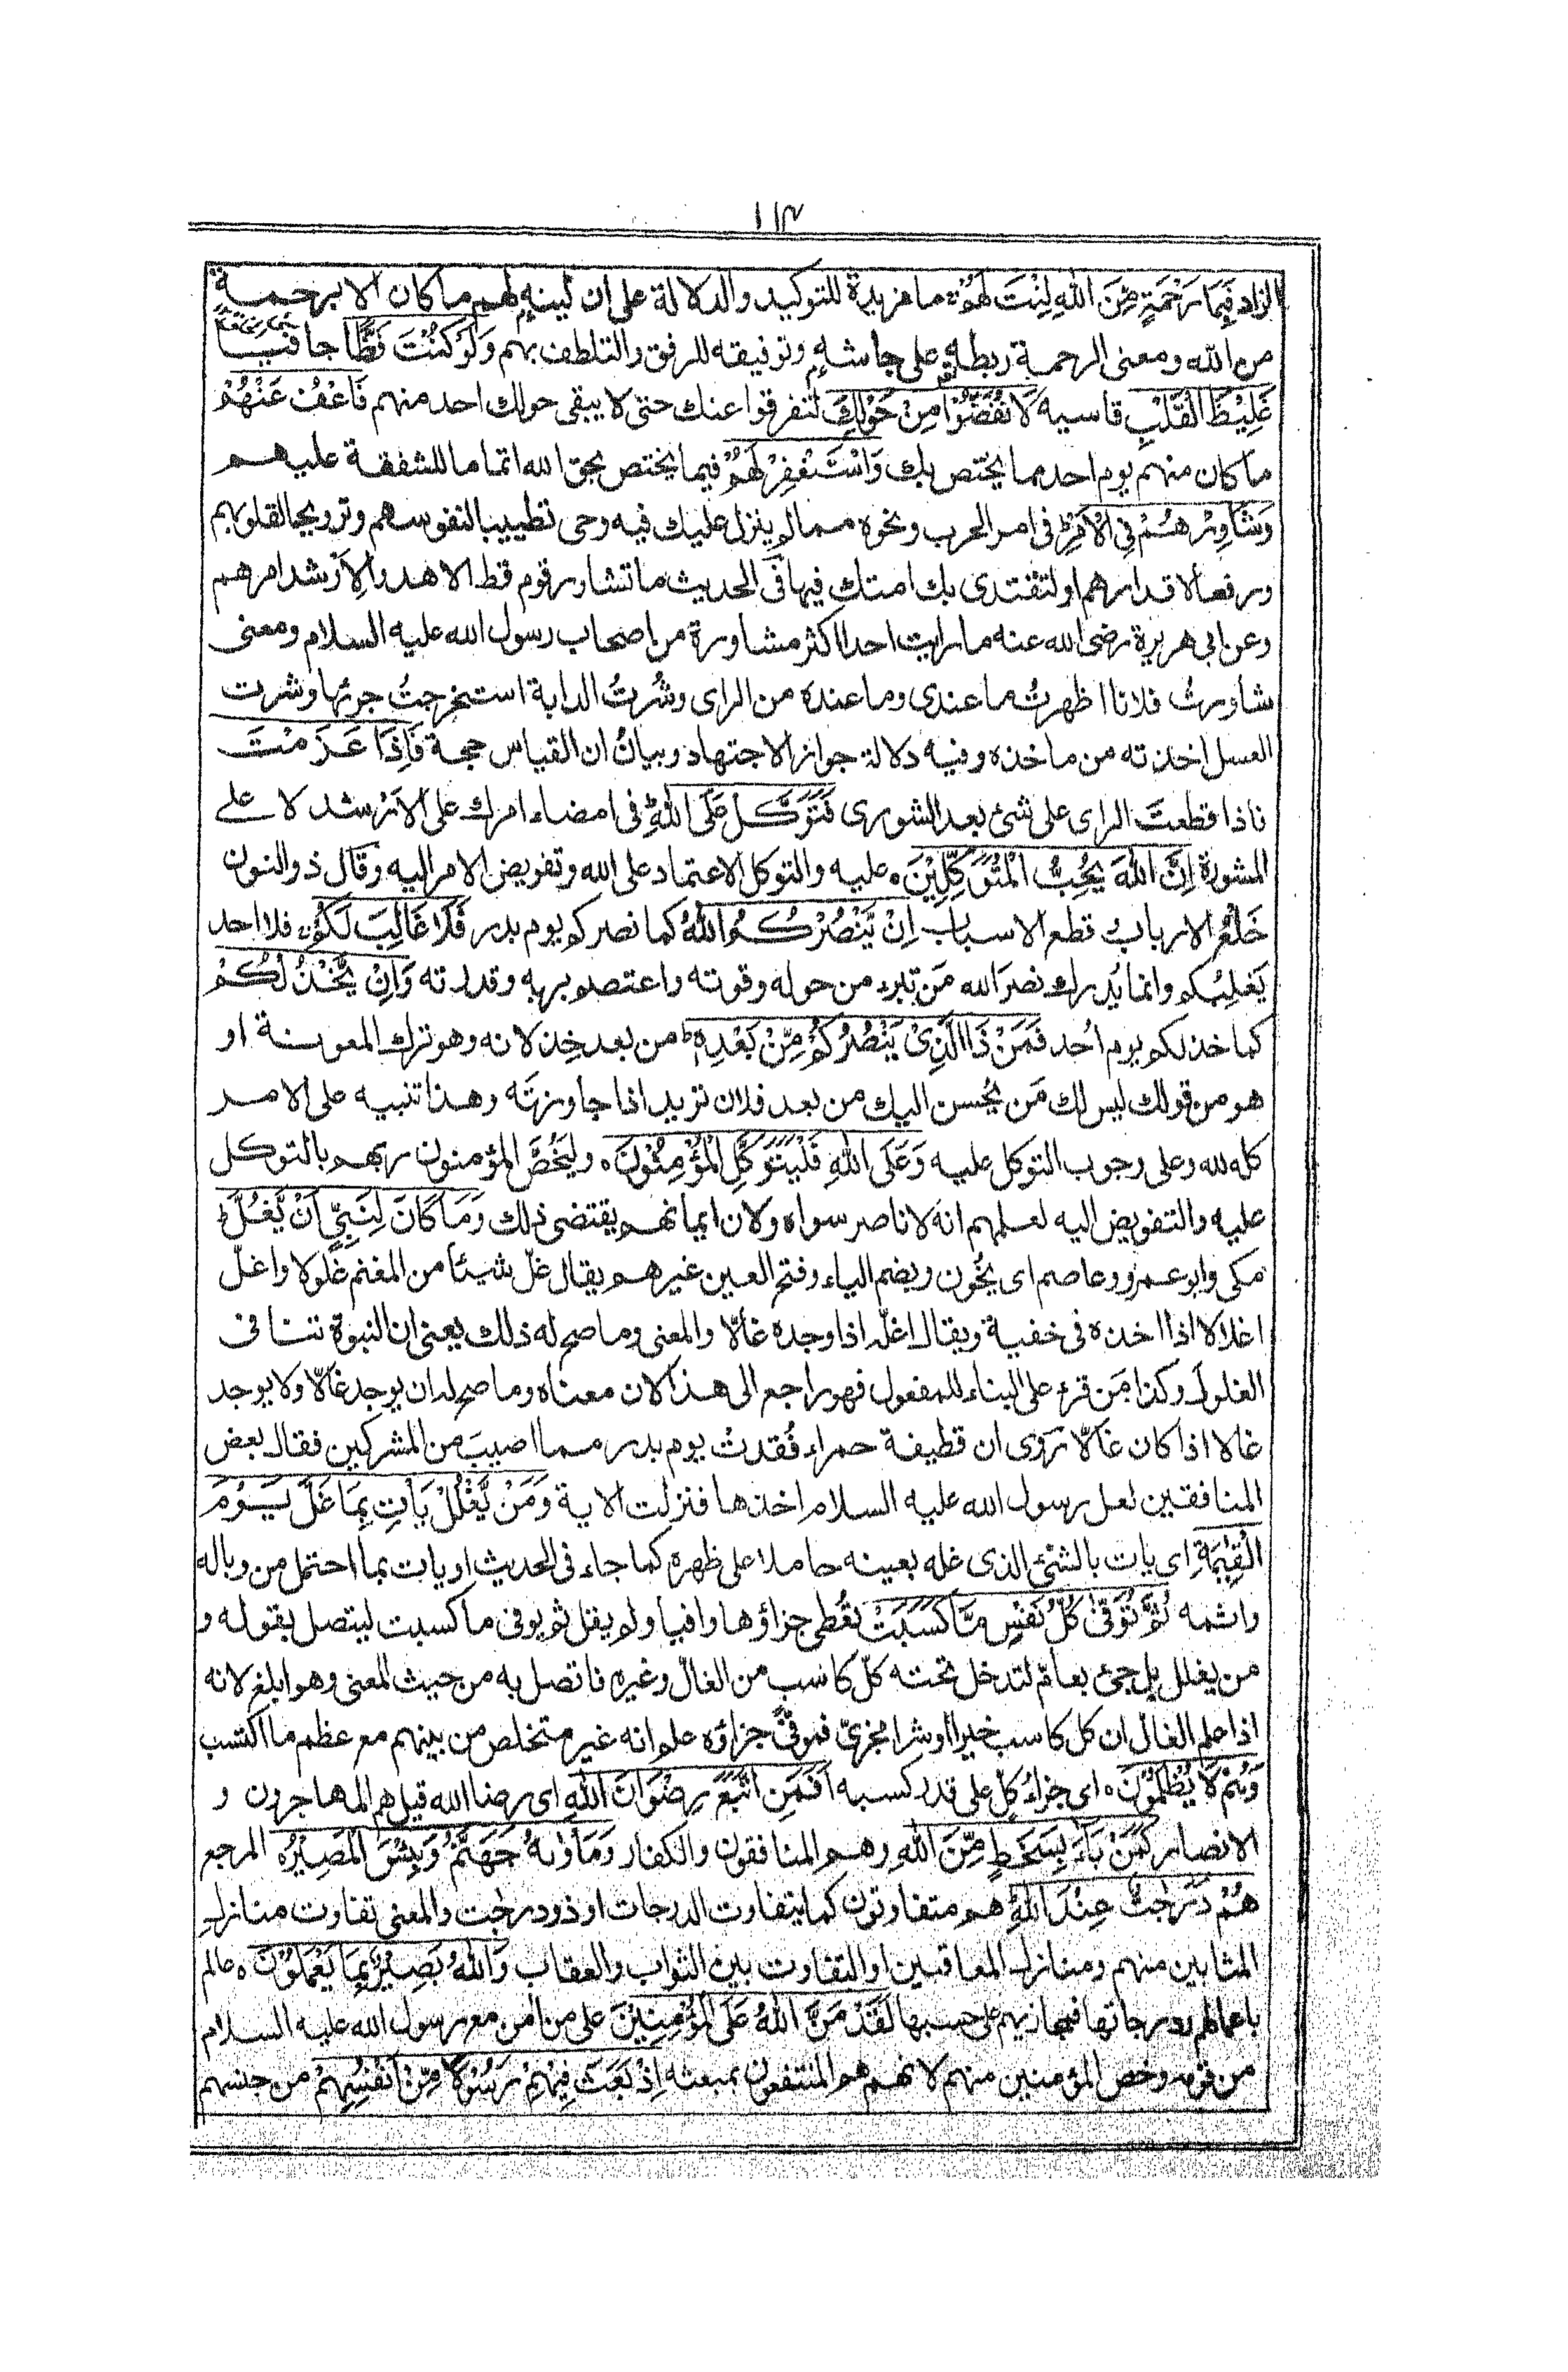 ١١٣
الزاد فَبِمَا رَحْمَةٍ مِّنَ اللهِ لِنْتَ لَهُمْ ما مزيدة للتوكيد والدلالة على ان لينه لهم ما كان الا برحمة
من الله ومعنى الرحمة ربطه على جاشه وتوفيقه للرفق والتلطف بهم وَلَوْ كُنْتَ فَظًّا جافيا
غَلِيْظَ الْقَلْبِ قاسيه لَانْفَضُّوْا مِنْ حَوْلِكَ لتفرقوا عنك حتى لا يبقى حولك احد منهم فَاعْفُ عَنْهُمْ
ما كان منهم يوم احد مما يختص بك وَاسْتَغْفِرْ لَهُمْ فيما يختص بحق الله اتماما للشفقة عليهم
وَشَاوِرْهُمْ فِى الْاَمْرِ فى امر الحرب ونحوه مما لم ينزل عليك فيه وحى تطييبا لنفوسهم وترويحا لقلوبهم
ورفعا لاقدارهم او لتقتدى بك امتك فيها فى الحديث ما تشاور قوم قط الا هدوا لارشد امرهم
وعن ابى هريرة رضى الله عنه ما رايت احدا اكثر مشاورة من اصحاب رسول الله عليه السلام ومعنى
شاورت فلانا اظهرتُ ما عندى وما عنده من الراى وشُرتُ الدابة استخرجتُ جريها وشرت
العسل اخذته من ماخذه وفيه دلالة جواز الاجتهاد وبيانُ ان القياس حجة فَاِذَا عَزَمْتَ
فاذا قطعتَ الراى على شئ بعد الشورى فَتَوَكَّلْ عَلَى اللهِ فى امضاء امرك على الارشد لا على
المشورة اِنَّ اللهَ يُحِبُّ الْمُتَوَكِّلِيْنَ ٥ عليه والتوكل الاعتماد على الله وتفويض الامر اليه وقال ذو النون
خَلْعُ الارباب قطع الاسباب اِنْ يَّنْصُرْكُمُ اللهُ كما نصركم يوم بدر فَلَا غَالِبَ لَكُمْ فلا احد
يَغلِبُكم وانما يُدرك نصرَ الله مَن تبرء من حوله وقوته واعتصم بربه وقدرته وَاِنْ يَّخْذُلْكُمْ
كما خذلكم يوم اُحد فَمَنْ ذَا الَّذِىْ يَنْصُرُكُمْ مِّنْ بَعْدِهٖ ط من بعد خِذلانه وهو ترك المعونة او
هو من قولك ليس لك مَن يُحسن اليك من بعد فلان تريد اذا جاوزتَه وهذا تنبيه على الامر
كله لله وعلى وجوب التوكل عليه وَعَلَى اللهِ فَلْيَتَوَكَّلِ الْمُؤْمِنُوْنَ ٥ وليَخُصَّ المؤمنون ربهم بالتوكل
عليه والتفويض اليه لعلمهم انه لا ناصر سواه ولان ايمانهم يقتضى ذلك وَمَا كَانَ لِنَبِىٍّ اَنْ يَّغُلَّ ط
مكى وابو عمرو وعاصم اى يخُون وبضم الياء وفتح العين غيرهم يقال غلّ شيئا من المغنم غُلولا واغلّ
اغلالا اذا اخذه فى خفية ويقال اغلّه اذا وجده غالّا والمعنى وما صح له ذلك يعنى ان النبوة تنافى
الغلول وكذا مَن قرء على البناء للمفعول فهو راجع الى هذا لان معناه وما صح له ان يوجد غالّا ولا يوجد
غالا اذا كان غالّا روى ان قطيفة حمراء فُقدت يوم بدر مما اصيب من المشركين فقال بعض
المنافقين لعل رسول الله عليه السلام اخذها فنزلت الاية وَمَنْ يَّغْلُلْ يَاْتِ بِمَا غَلَّ يَوْمَ
الْقِيٰمَةِ اى يات بالشئ الذى غله بعينه حاملا على ظهره كما جاء فى الحديث او يات بما احتمل من وباله
واثمه ثُمَّ تُوَفّٰى كُلُّ نَفْسٍ مَّا كَسَبَتْ تعُطى جزاؤها وافيا ولم يقل ثم يوفى ما كسبت ليتصل بقوله و
من يغلل بل جئ بعامّ لتدخل تحته كلّ كاسب من الغالّ وغيره فاتصل به من حيث المعنى وهو ابلغ لانه
اذا علم الغالّ ان كل كاسب خيرا او شرا مجزىّ فموفىًّ جزاؤه علم انه غير متخلص من بينهم مع عظم ما اكتسب
وَهُمْ لَا يُظْلَمُوْنَ ٥ اى جزاءُ كلّ على قدر كسبه اَفَمَنِ اتَّبَعَ رِضْوَانَ اللهِ اى رضا الله قيل هم المهاجرون و
الانصار كَمَنْ بَآءَ بِسَخَطٍ مِّنَ اللهِ وهم المنافقون والكفار وَمَاْوٰىهُ جَهَنَّمُ وَبِئْسَ الْمَصِيْرُ ٥ المرجع
هُمْ دَرَجٰتٌ عِنْدَ اللهِ هم متفاوتون كما يتفاوت الدرجات او ذوو درجٰت والمعنى تفاوت منازل
المثابين منهم ومنازل المعاقبين او التفاوت بين الثواب والعقاب وَاللهُ بَصِيْرٌۢ بِمَا يَعْمَلُوْنَ ٥ عالم
باعمالهم ودرجاتها فيجازيهم على حسبها لَقَدْ مَنَّ اللهُ عَلَى الْمُؤْمِنِيْنَ على من اٰمن مع رسول الله عليه السلام
من قومه وخص المؤمنين منهم لانهم هم المنتفعون بمبعثه اِذْ بَعَثَ فِيْهِمْ رَسُوْلًا مِّنْ اَنْفُسِهِمْ من جنسهم